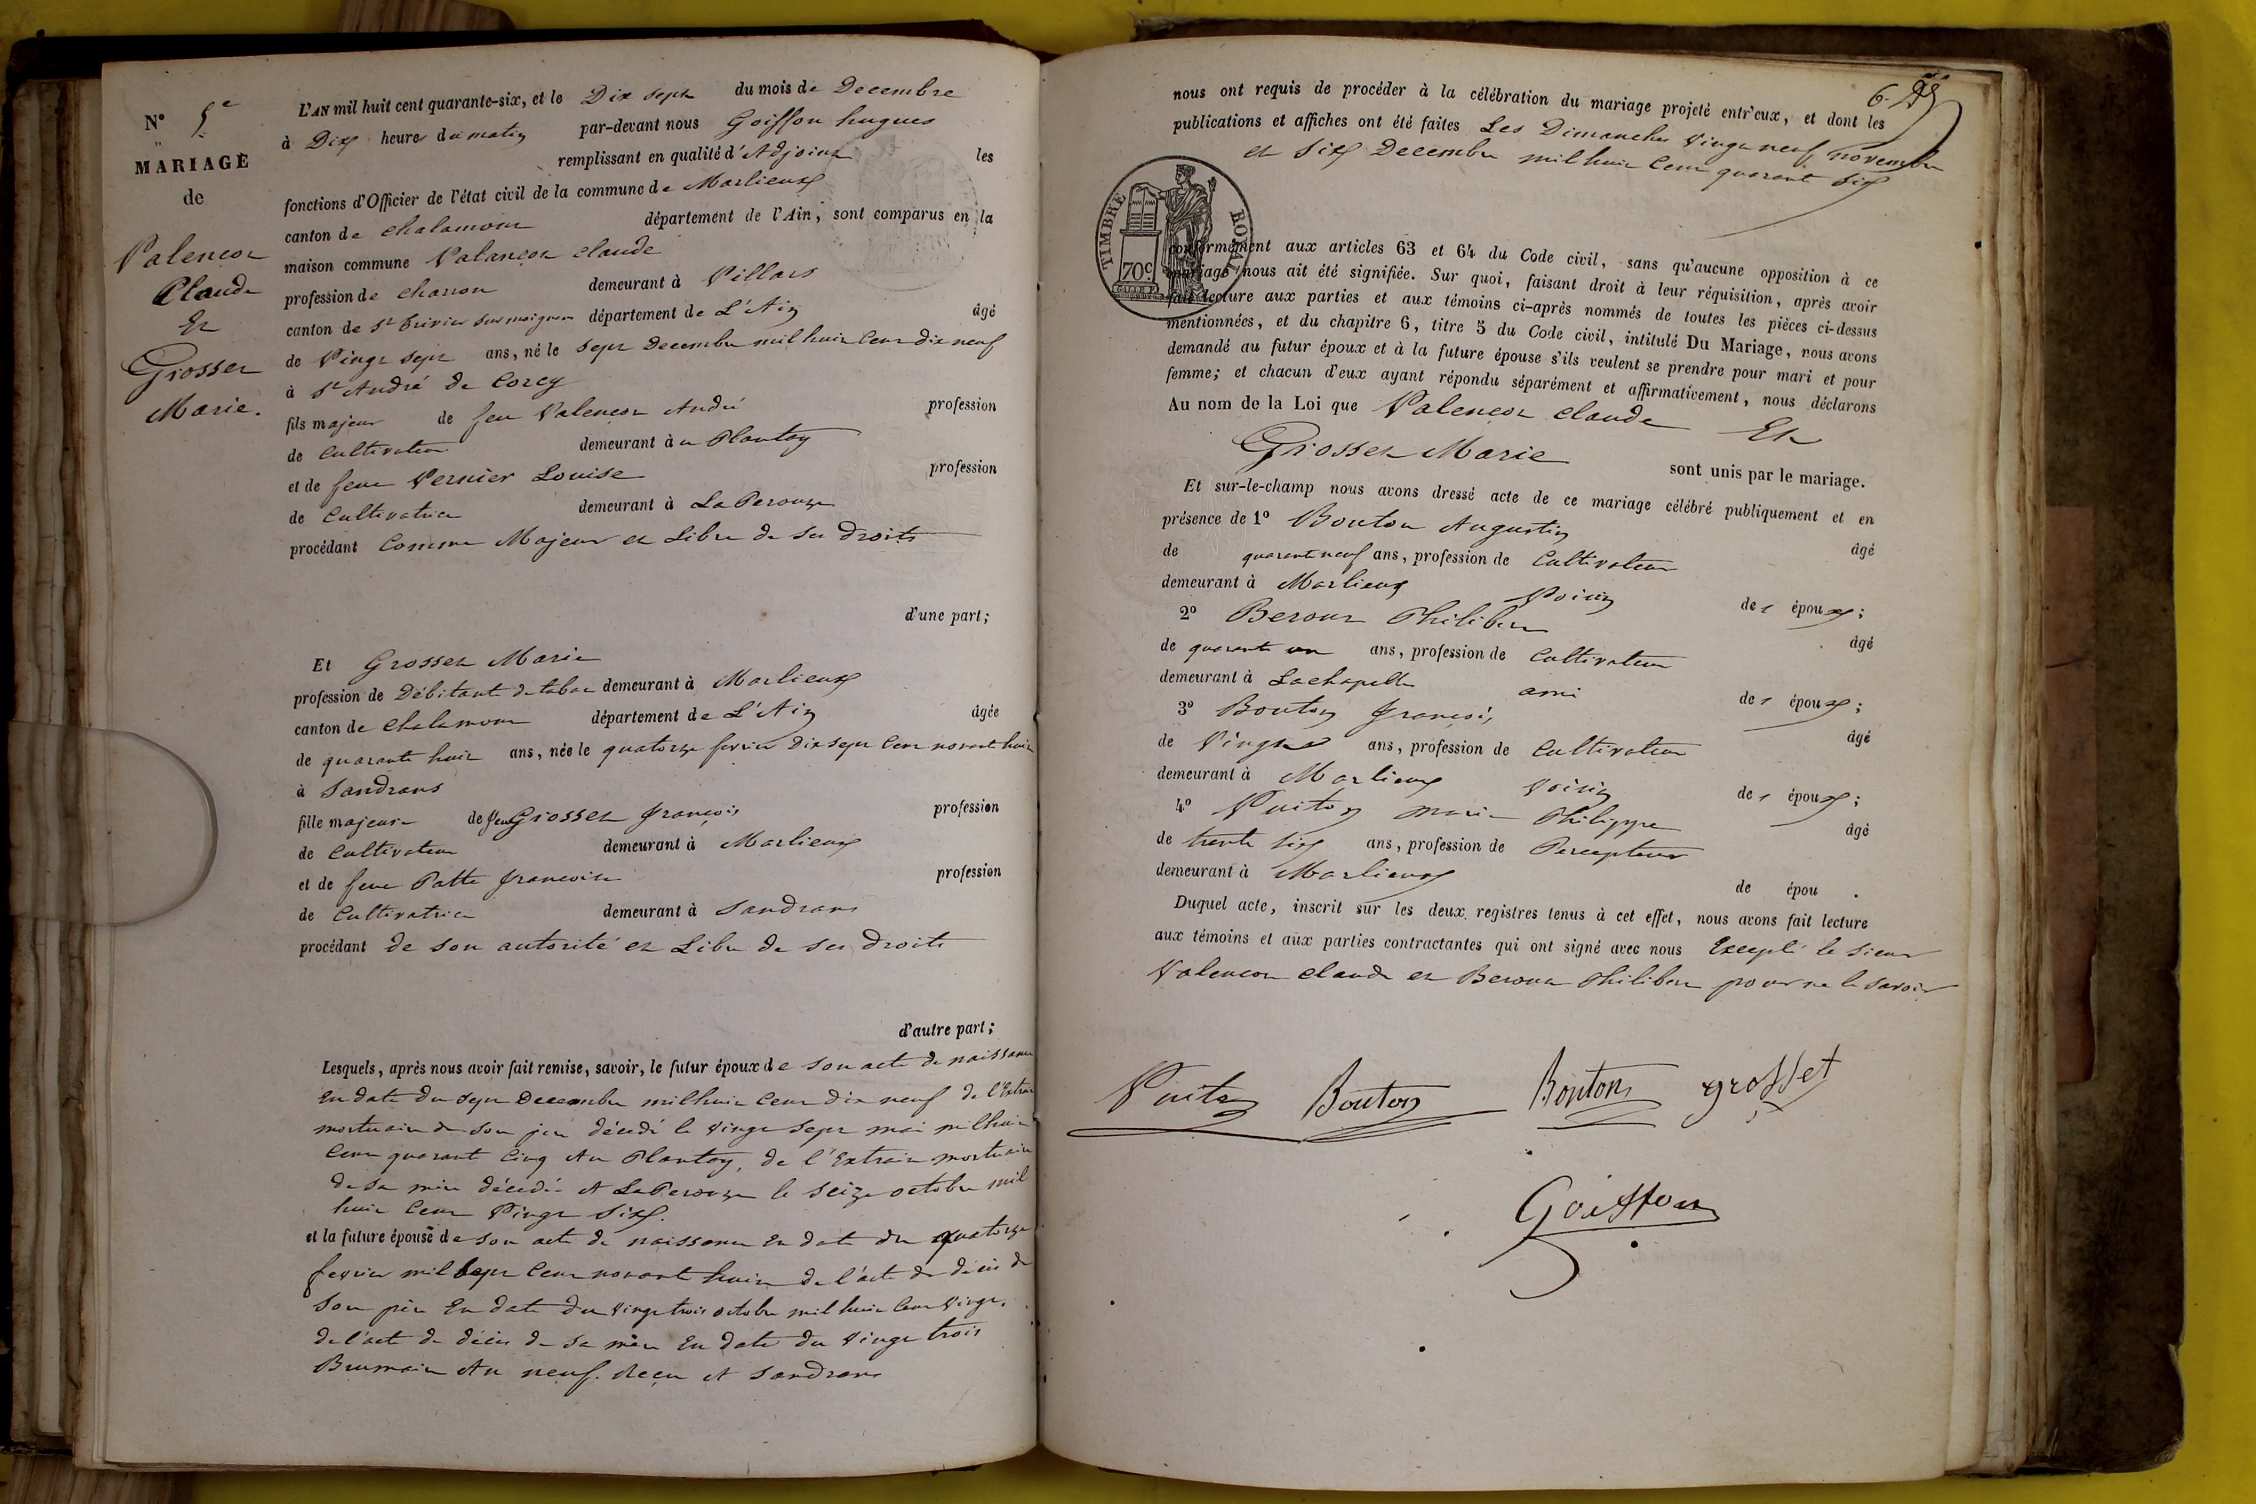 N° 5e
MARIAGE
de
Valençot
Claude
Et
Grosset
Marie.
L'AN mil huit cent quarante-six, et le Dix sept du mois de Decembre
à Dix heures du matin par-devant nous Goiffon hugues
remplissant en qualité d'Adjoint les
fonctions d'Officier de l'état civil de la commune de Marlieux
canton de chalamont département de l'Ain, sont comparus en la
maison commune Valançot claude
profession de charron demeurant à Villars
canton de St trivier sur moignan département de L'Ain âgé
de Vingt sept ans, né le sept Decembre mil huit Cent dix neuf
à St André de Corcy
fils majeur de feu Valençot André profession
de Cultivateur demeurant à u Plantay
et de feue Vernier Louise profession
de Cultivatrice demeurant à La Perouze
procédant Comme Majeur et Libre de ses droits
d'une part;
Et Grosset Marie
profession de Débitante de tabac demeurant à Marlieux
canton de Chalamont département de L'Ain âgée
de quarante huit ans, née le quatorze fevrier dix sept Cent novante huit
à Sandrans
fille majeure de feu Grosset françois profession
de Cultivateur demeurant à Marlieux
et de feue Patte françoise profession
de Cultivatrice demeurant à Sandrans
procédant de son autorité et Libre de ses droits
d'autre part;
Lesquels, après nous avoir fait remise, savoir, le futur époux de son acte de naissance
En date du sept Decembre mil huit Cent dix neuf de l'Extrait
mortuaire de son père décédé le vingt sept mai mil huit
Cent quarant Cinq Au Plantay, de l'Extrait mortuaire
de sa mère décédée A La Perouze le seize octobre mil
huit Cent Vingt Six.
et la future épouse de son acte de naissance En date du quatorze
fevrier mil sept Cent novante huit de l'acte de décès de
Son père En date du vingt trois octobre mil huit Cent vingt,
de l'acte de décès de sa mère En date du vingt trois
Brumaire An neuf. Reçu A Sandrans
6.
nous ont requis de procéder à la célébration du mariage projeté entr'eux, et dont les
publications et affiches ont été faites Les Dimanches Vingt neuf novembre
et Six Decembre mil huit Cent quarant Six
TIMBRE ROYAL
70c
conformément aux articles 63 et 64 du Code civil, sans qu'aucune opposition à ce
mariage nous ait été signifiée. Sur quoi, faisant droit à leur réquisition, après avoir
fait lecture aux parties et aux témoins ci-après nommés de toutes les pièces ci-dessus
mentionnées, et du chapitre 6, titre 5 du Code civil, intitulé Du Mariage, nous avons
demandé au futur époux et à la future épouse s'ils veulent se prendre pour mari et pour
femme; et chacun d'eux ayant répondu séparément et affirmativement, nous déclarons
Au nom de la Loi que Valençot claude Et
Grosset Marie sont unis par le mariage.
Et sur-le-champ nous avons dressé acte de ce mariage célébré publiquement et en
présence de 1° Bouton Augustin âgé
de quarant neuf ans, profession de Cultivateur
demeurant à Marlieux Voisin de l époux;
2° Beroux Philibert âgé
de quarante un ans, profession de Cultivateur
demeurant à Lachapelle ami de l époux;
3° Bouton françois, âgé
de ans, profession de Cultivateur
demeurant à Marlieux voisin de l époux;
4° Puiton marie Philippe âgé
de trente six ans, profession de Percepteur
demeurant à Marlieux de épou .
Duquel acte, inscrit sur les deux registres tenus à cet effet, nous avons fait lecture
aux témoins et aux parties contractantes qui ont signé avec nous Excepté le Sieur
Valencon claude et Beroux Philibert pour ne le savoir
Puiton Bouton Bouton grosset
Goiffon